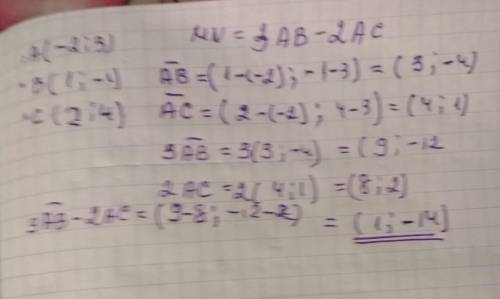 A(-2;3) MN = 3AB-2AC
B(1;-1) AB=(1-(-2);-1-3)=(3;-4)
C(2;4) AC=(2-(-2);4-3)=(4;1)
3AB=3(3;-4)=(9;-12
2AC=2(4;1)=(8;2)
3AB-2AC=(9-8;-12-2)=(1;-14)